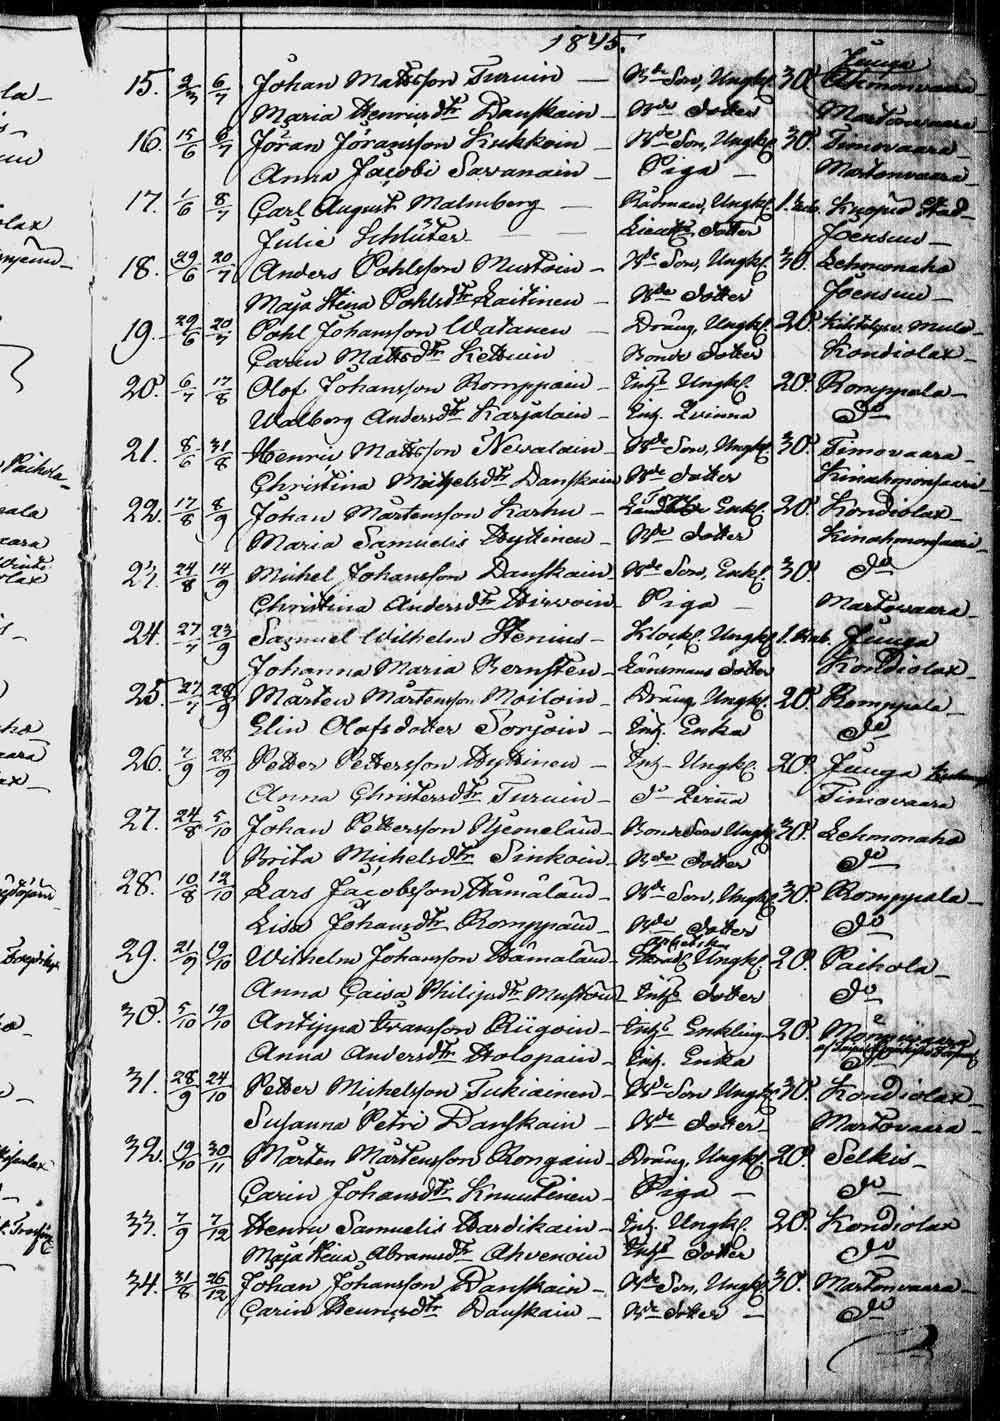 1845.
15. 2/3 6/7 Johan Mattsson Turuin — Bde Son, Ungk. 30. Juuga Ahmonvaara —
Maria Henricsdtr Danskain — Bde dotter Martonvaara —
16. 15/6 6/7 Jöran Jöransson Kukkoin — Bde Son, Ungk. 30. Timovaara —
Anna Jacobi Savanain — Piga — Martonvaara —
17. 1/6 8/7 Carl August Malmberg — Rådman, Ungk. 1 Rub. Kuopio Stad —
Julie Schlüter — dotter Joensuu —
18. 29/6 20/7 Anders Pohlsson Mustoin — Bde Son, Ungk. 30. Lehmonaho
Maja Stina Pohlsdtr Laitinen — Bde dotter Joensuu —
19. 29/6 20/7 Pohl Johansson Watanen — Dräng, Ungk. 20. Mulo
Carin Mattsdtr Kettuin Bonde dotter Kondiolax —
20. 6/7 17/8 Olof Johansson Romppain — Inhs Ungk. 20. Romppala —
Walborg Andersdtr Karjalain — Inh. Qvinna Do
21. 8/6 31/8 Henric Mattsson Nevalain — Bde Son, Ungk. 30. Timovaara —
Christina Michelsdtr Danskain Bde dotter Kinahmonsaari —
22. 17/8 8/9 Johan Mårtensson Karhu — Enkl. 20. Kondiolax —
Maria Samuelis Hyttinen — Bde dotter Kinahmonsaari —
23. 24/8 14/9 Michel Johansson Danskain — Bde Son, Enkl. 30. Do
Christina Andersdtr Hirvoin — Piga — Martovaara —
24. 27/7 23/9 Samuel Wilhelm Stenius — Klock. Ungk. 1 Rub. Juuga
Johanna Maria Bernsten — Länsmans dotter Kondiolax —
25. 27/7 28/9 Mårten Mårtensson Moiloin — Dräng, Ungk. 20. Romppala —
Elin Olofsdotter Sorjoin — Inh. Enka Do
26. 7/9 28/9 Petter Pettersson Hyttinen — Inh. Ungk. 20. Juuga
Anna Christersdtr Turuin — do Qvinna Timovaara
27. 24/8 5/10 Johan Pettersson — Bonde Son Ungk. 30. Lehmonaho
Brita Michelsdtr Sinkoin — Bde dotter Do
28. 10/8 12/10 Lars Jacobsson Hämäläin — Bde Son, Ungk. 30. Romppala —
Lisa Johansdtr Romppain — Bde dotter Do
29. 21/9 19/10 Wilhelm Johansson Hämäläin — Ungk. 20. Paihola —
Anna Caisa Philipsdtr Mustoin — Inhs dotter Do
30. 5/10 19/10 Antippa Ivansson Riigoin — Inhs Enkling — 20.
Anna Andersdtr Holopain — Inh. Enka
31. 28/9 24/10 Petter Michelsson Tukiainen — Bde Son Ungk. 30. Kondiolax —
Susanna Petri Danskain — Bde dotter — Martovaara —
32. 19/10 30/11 Mårten Mårtensson Rongain — Dräng, Ungk. 20. Selkis —
Carin Johansdtr Knuutinen — Piga — Do
33. 7/9 7/12 Henric Samuelis Hardikain — Inh. Ungk. 20. Kondiolax
Maja Stina Abramsdtr Ahvenoin Inhs dotter Do
34. 31/8 26/12 Johan Johansson Danskain — Bde Son, Ungk. 30. Martonvaara —
Carin Henricsdtr Danskain — Bde dotter — Do